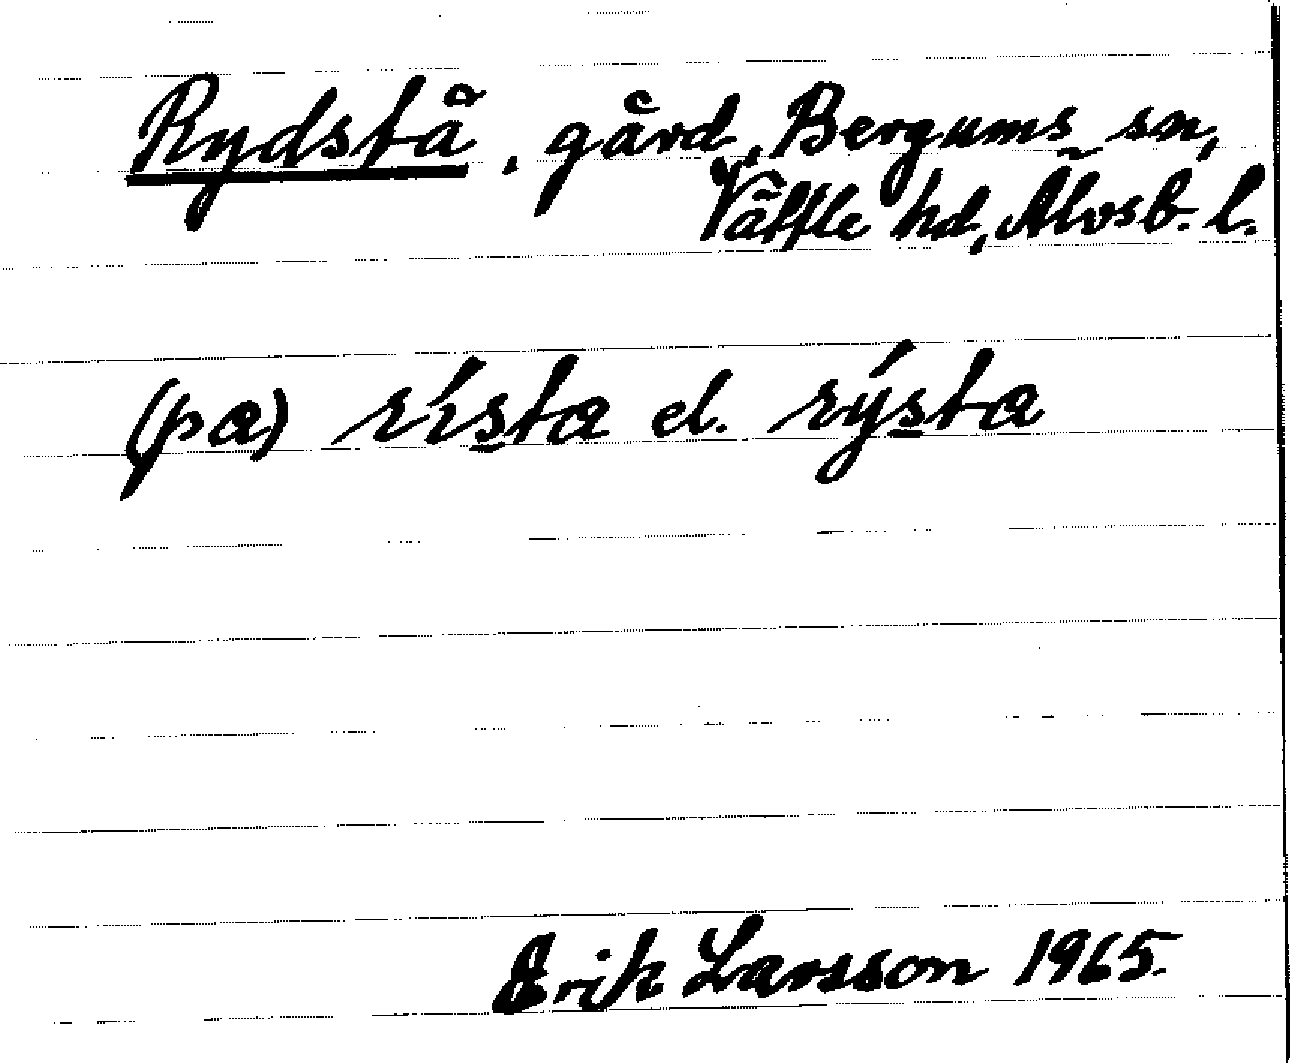 Rydstå, gård, Bergums sn,
Vättle hd, Älvsb. l.
(pa) rísta el. rýsta
Erik Larsson 1965.